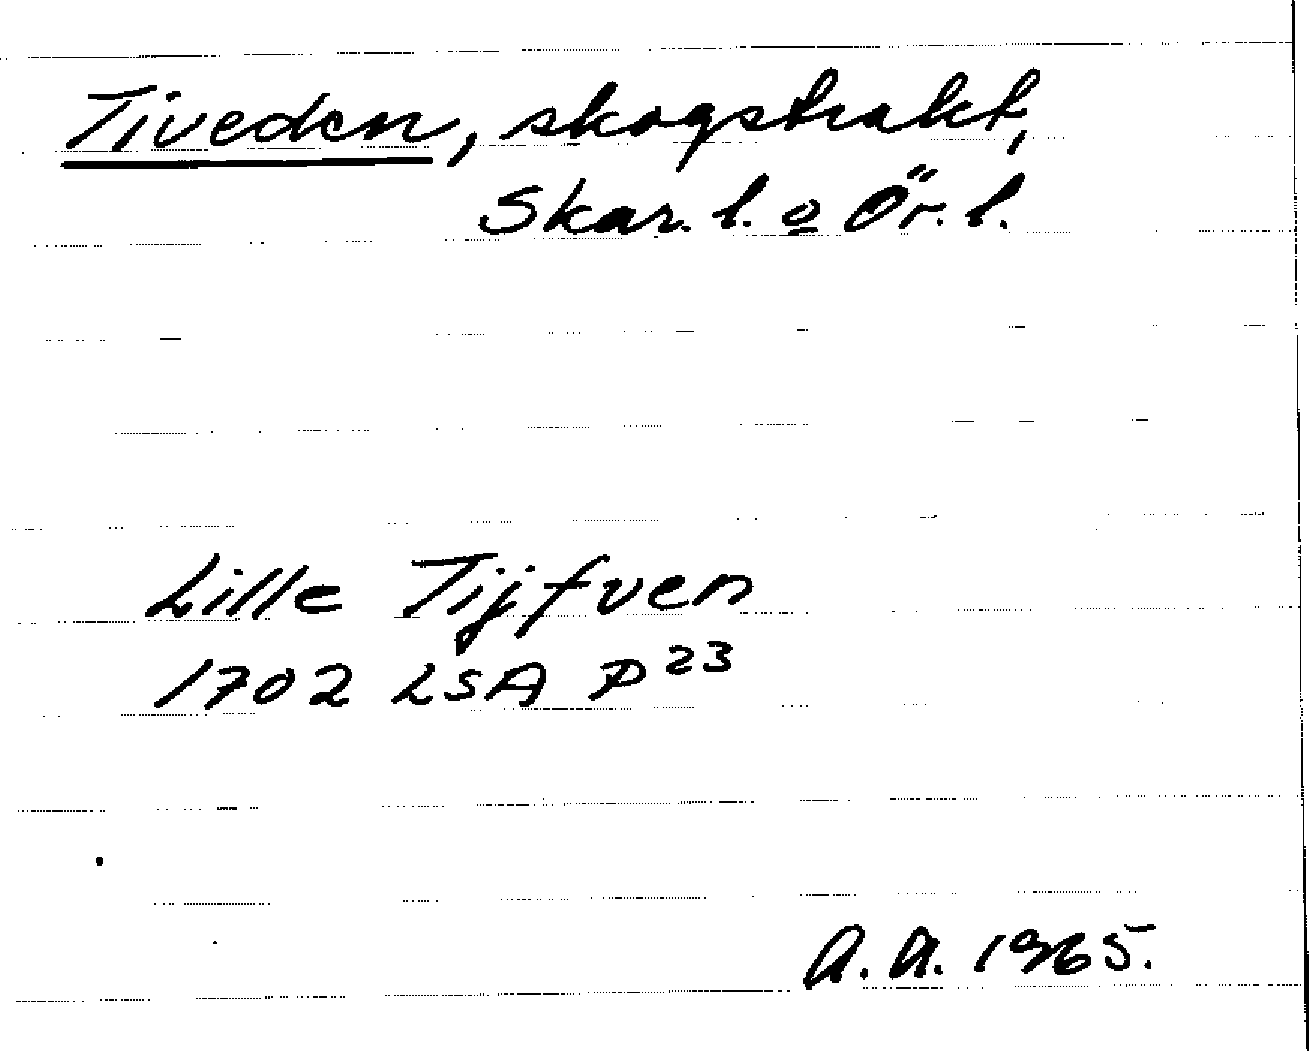 Tiveden, skogstrakt,
Skar. l. o Ör. l.
Lille Tijfven
1702 LSA P 23
A. A. 1965.